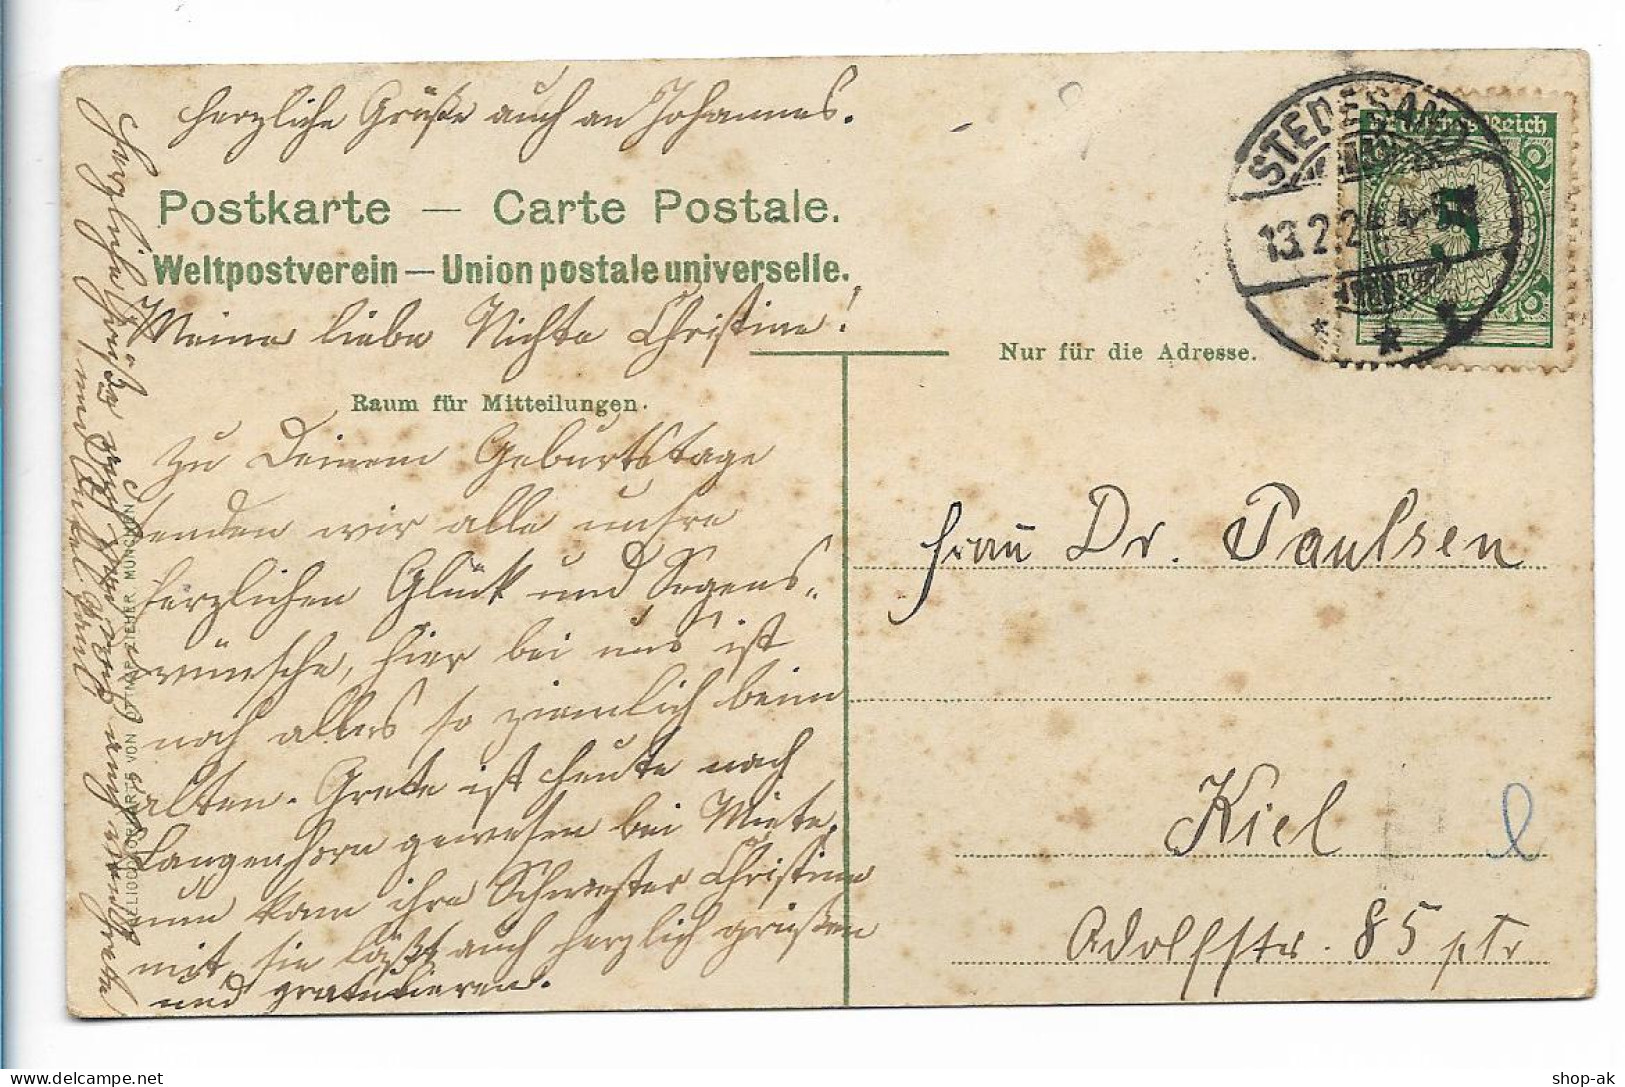 herzliche Grüße auch an Johannes.
Postkarte — Carte Postale.
Weltpostverein — Union postale universelle.
Meine liebe Nichte Christine!
Raum für Mitteilungen.
Zu Deinem Geburtstage
senden wir alle unsre
herzlichen Glück und Segens-
wünsche, hier bei uns ist
noch alles so ziemlich beim
alten. Grete ist heute nach
Langenhorn gewesen bei Miete,
nun kam ihre Schwester Christine
mit, sie läßt auch herzlich grüßen
und gratulieren.
Herzliche Grüße auch von
und Onkel
VON OTTMAR ZIEHER MÜNCHEN
STEDESAND
13.2.24. 4-5 N
Deutsches Reich
5
Nur für die Adresse.
Frau Dr. Paulsen
Kiel
Adolfstr. 85 ptr
shop-ak